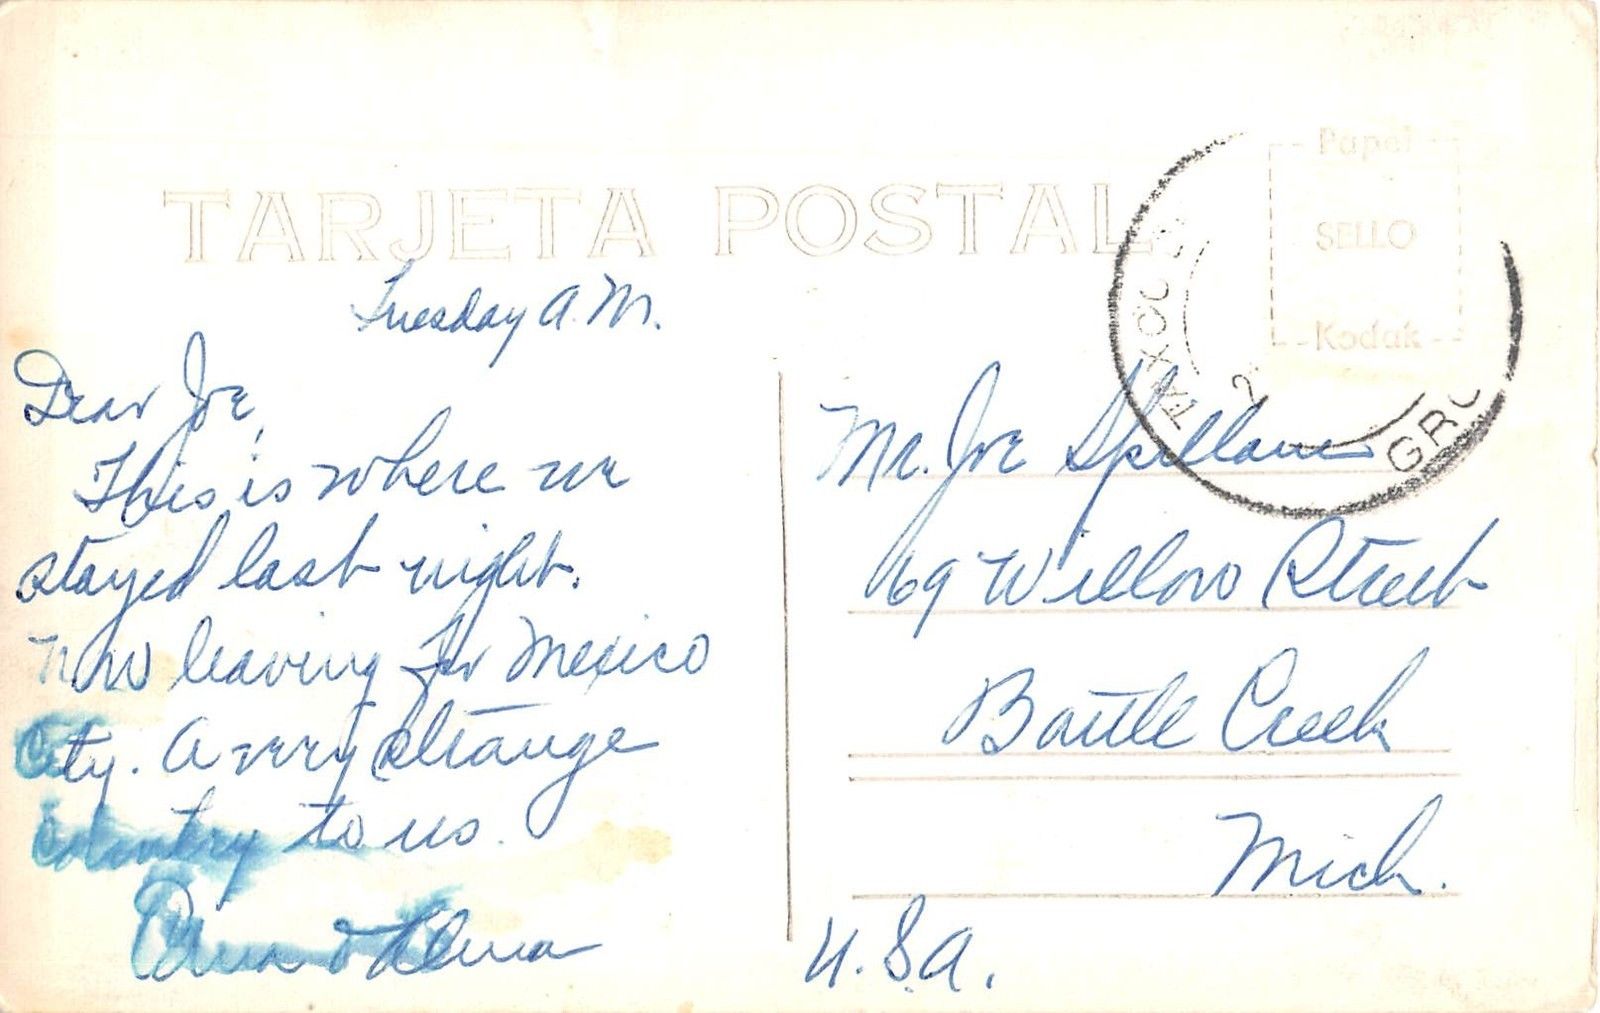 TARJETA POSTAL
Papel
SELLO
Kodak
TAXCO
2
GRO
Tuesday A.M.
Dear Joe,
This is where we
stayed last night.
Now leaving for Mexico
City. A very strange
country to us.
&
Mr. Joe Spillane
69 Willow Street
Battle Creek
Mich.
U.S.A.